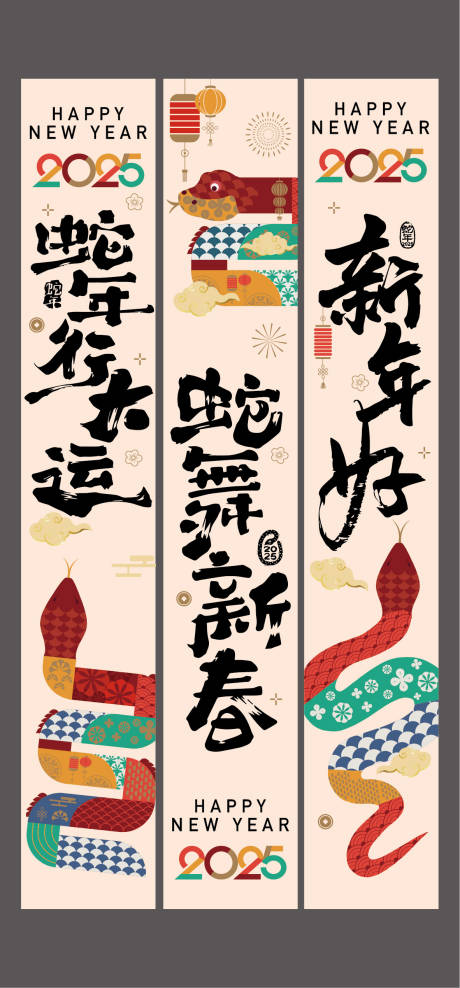 HAPPY
NEW YEAR
2025
蛇年行大运
蛇年
蛇舞新春
2025
HAPPY
NEW YEAR
2025
HAPPY
NEW YEAR
2025
新年好